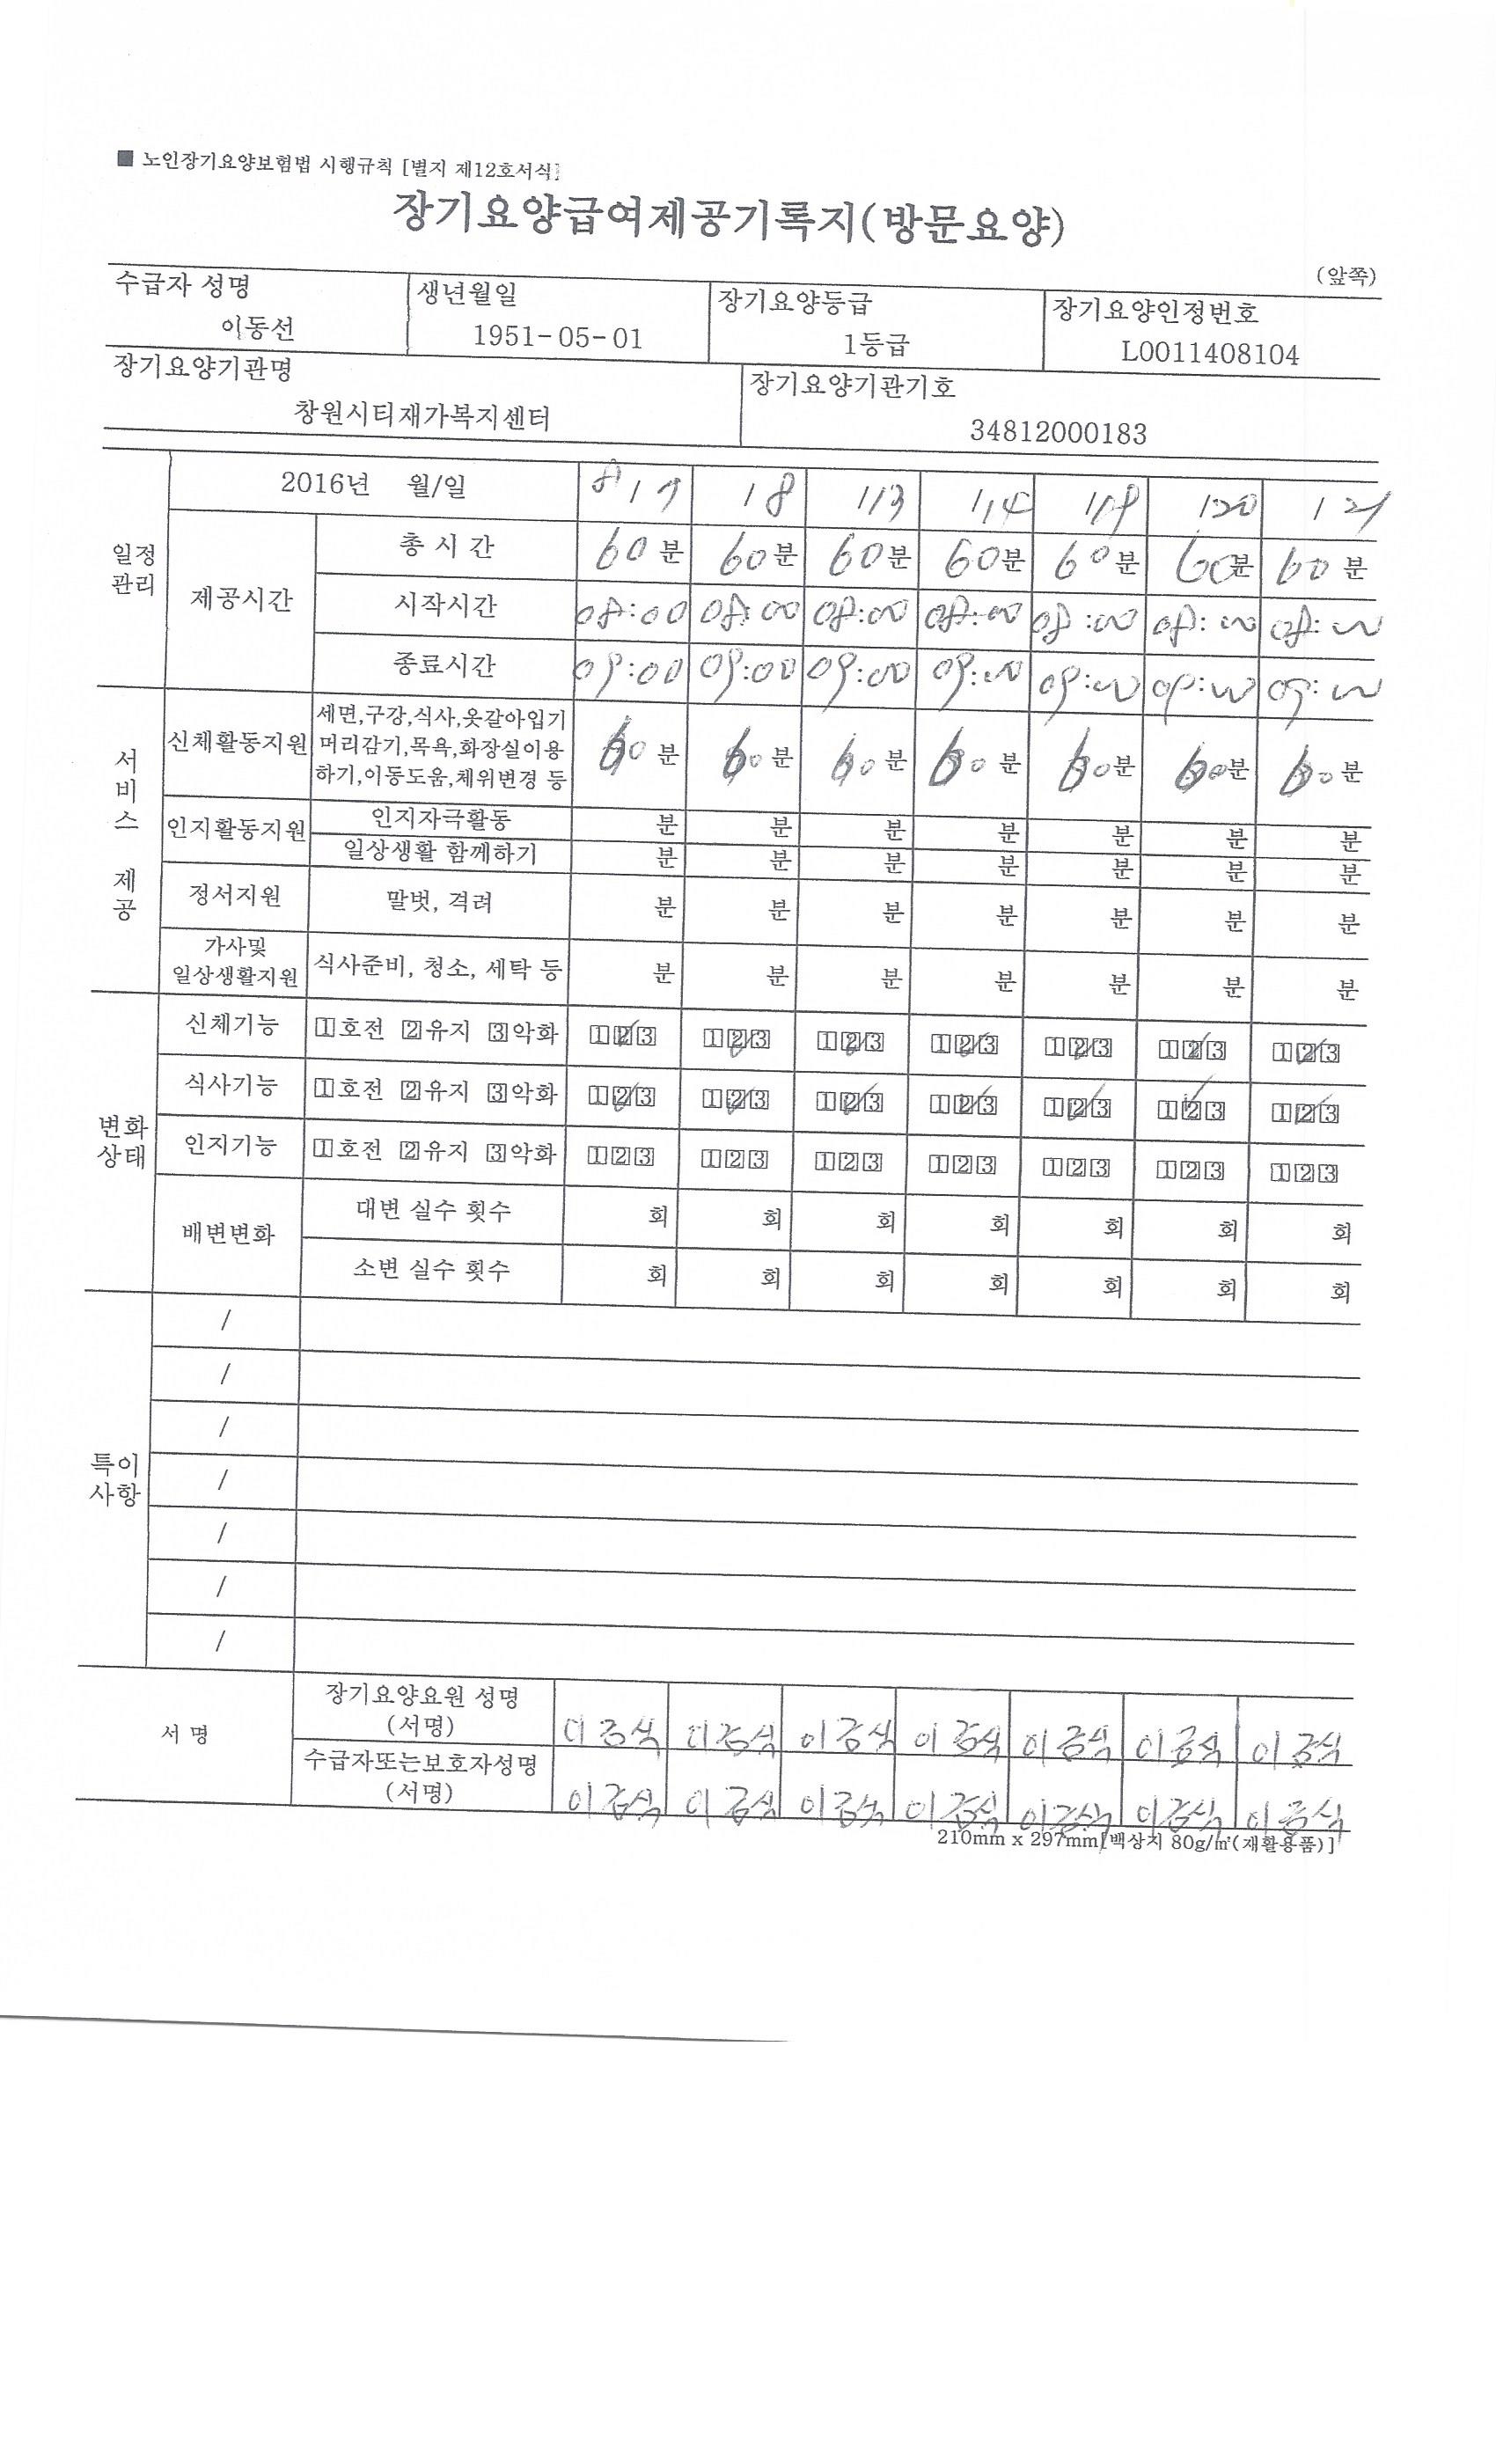 ■ 노인장기요양보험법 시행규칙 [별지 제12호서식]
장기요양급여제공기록지(방문요양)
(앞쪽)
수급자 성명 생년월일 장기요양등급 장기요양인정번호
이동선 1951-05-01 1등급 L0011408104
장기요양기관명 장기요양기관기호
창원시티재가복지센터 34812000183
일정 관리
2016년 월/일 8/7 / 8 /13 /14 /19 /20 / 21
제공시간
총 시 간 60분 60분 60분 60분 60분 60분 60분
시작시간 08:00 08:00 08:00 08:00 08:00 08:00 08:00
종료시간 09:00 09:00 09:00 09:00 09:00 09:00 09:00
서비스 제공
신체활동지원
세면,구강,식사,옷갈아입기
머리감기,목욕,화장실이용
하기,이동도움,체위변경 등
60분 60분 60분 60분 60분 60분 60분
인지활동지원
인지자극활동 분 분 분 분 분 분 분
일상생활 함께하기 분 분 분 분 분 분 분
정서지원 말벗, 격려 분 분 분 분 분 분 분
가사및
일상생활지원
식사준비, 청소, 세탁 등 분 분 분 분 분 분 분
변화 상태
신체기능 1호전 2유지 3악화 123 123 123 123 123 123 123
식사기능 1호전 2유지 3악화 123 123 123 123 123 123 123
인지기능 1호전 2유지 3악화 123 123 123 123 123 123 123
배변변화
대변 실수 횟수 회 회 회 회 회 회 회
소변 실수 횟수 회 회 회 회 회 회 회
특이 사항
/
/
/
/
/
/
/
서 명
장기요양요원 성명
(서명)
이금식 이금식 이금식 이금식 이금식 이금식 이금식
수급자또는보호자성명
(서명)
이금식 이금식 이금식 이금식 이금식 이금식 이금식
210mm x 297mm[백상지 80g/㎡(재활용품)]